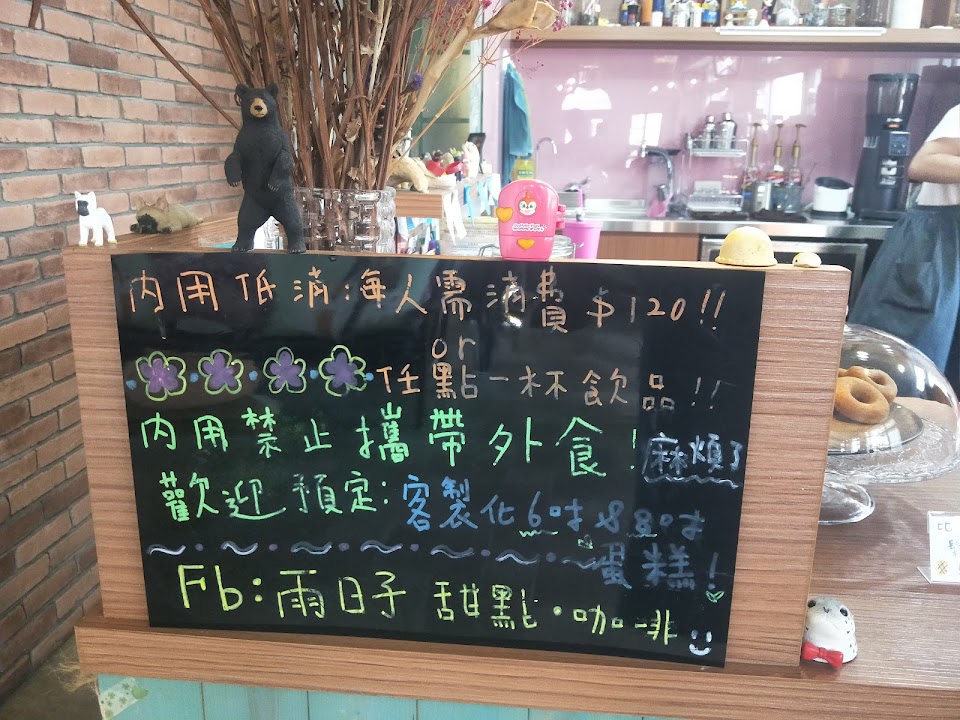 內用低消:每人需消費$120!!
or
任點一杯飲品!!
內用禁止攜帶外食!麻煩了
歡迎預定:客製化6吋&8吋
蛋糕!
Fb:雨日子 甜點·咖啡
比